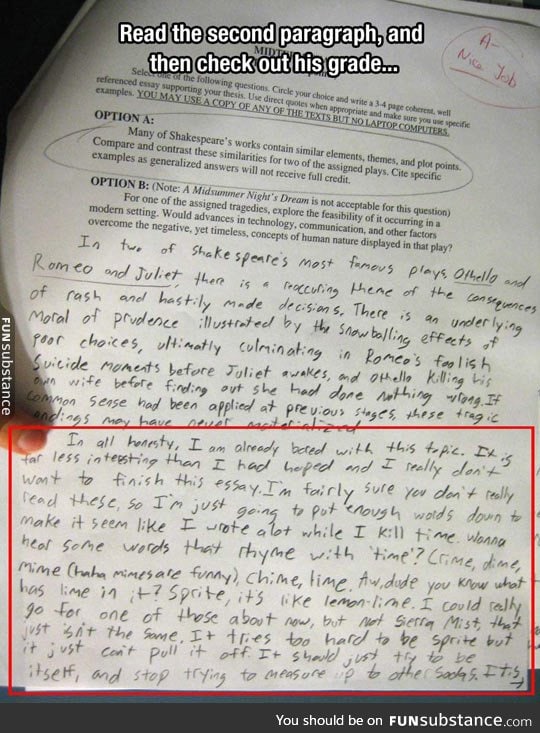 Read the second paragraph, and
then check out his grade...
A-
Nice Job
MIDT
Select one of the following questions. Circle your choice and write a 3-4 page coherent, well
referenced essay supporting your thesis. Use direct quotes when appropriate and make sure you use specific
examples. YOU MAY USE A COPY OF ANY OF THE TEXTS BUT NO LAPTOP COMPUTERS.
OPTION A:
Many of Shakespeare's works contain similar elements, themes, and plot points.
Compare and contrast these similarities for two of the assigned plays. Cite specific
examples as generalized answers will not receive full credit.
OPTION B: (Note: A Midsummer Night's Dream is not acceptable for this question)
For one of the assigned tragedies, explore the feasibility of it occurring in a
modern setting. Would advances in technology, communication, and other factors
overcome the negative, yet timeless, concepts of human nature displayed in that play?
In two of Shakespeare's most famous plays, Othello and
Romeo and Juliet, there is a reoccuring theme of the consequences
of rash and hastily made decisions. There is an underlying
moral of prudence illustrated by the snowballing effects of
poor choices, ultimatly culminating in Romeo's foolish
suicide moments before Juliet awakes, and Othello killing his
own wife before finding out she had done nothing wrong. If
common sense had been applied at previous stages, these tragic
endings may have never materialized
In all honesty, I am already bored with this topic. It is
far less interesting than I had hoped and I really don't
want to finish this essay. I'm fairly sure you don't really
read these, so I'm just going to put enough words down to
make it seem like I wrote alot while I kill time. Wanna
hear some words that rhyme with 'time'? Crime, dime,
mime (haha mimes are funny), chime, lime. Aw, dude you know what
has lime in it? Sprite, it's like lemon-lime. I could really
go for one of those about now, but not Sierra Mist, that
just isn't the same. It tries too hard to be sprite but
it just can't pull it off. It should just try to be
itself, and stop trying to measure up to other sodas. It is
FUNsubstance
You should be on FUNsubstance.com